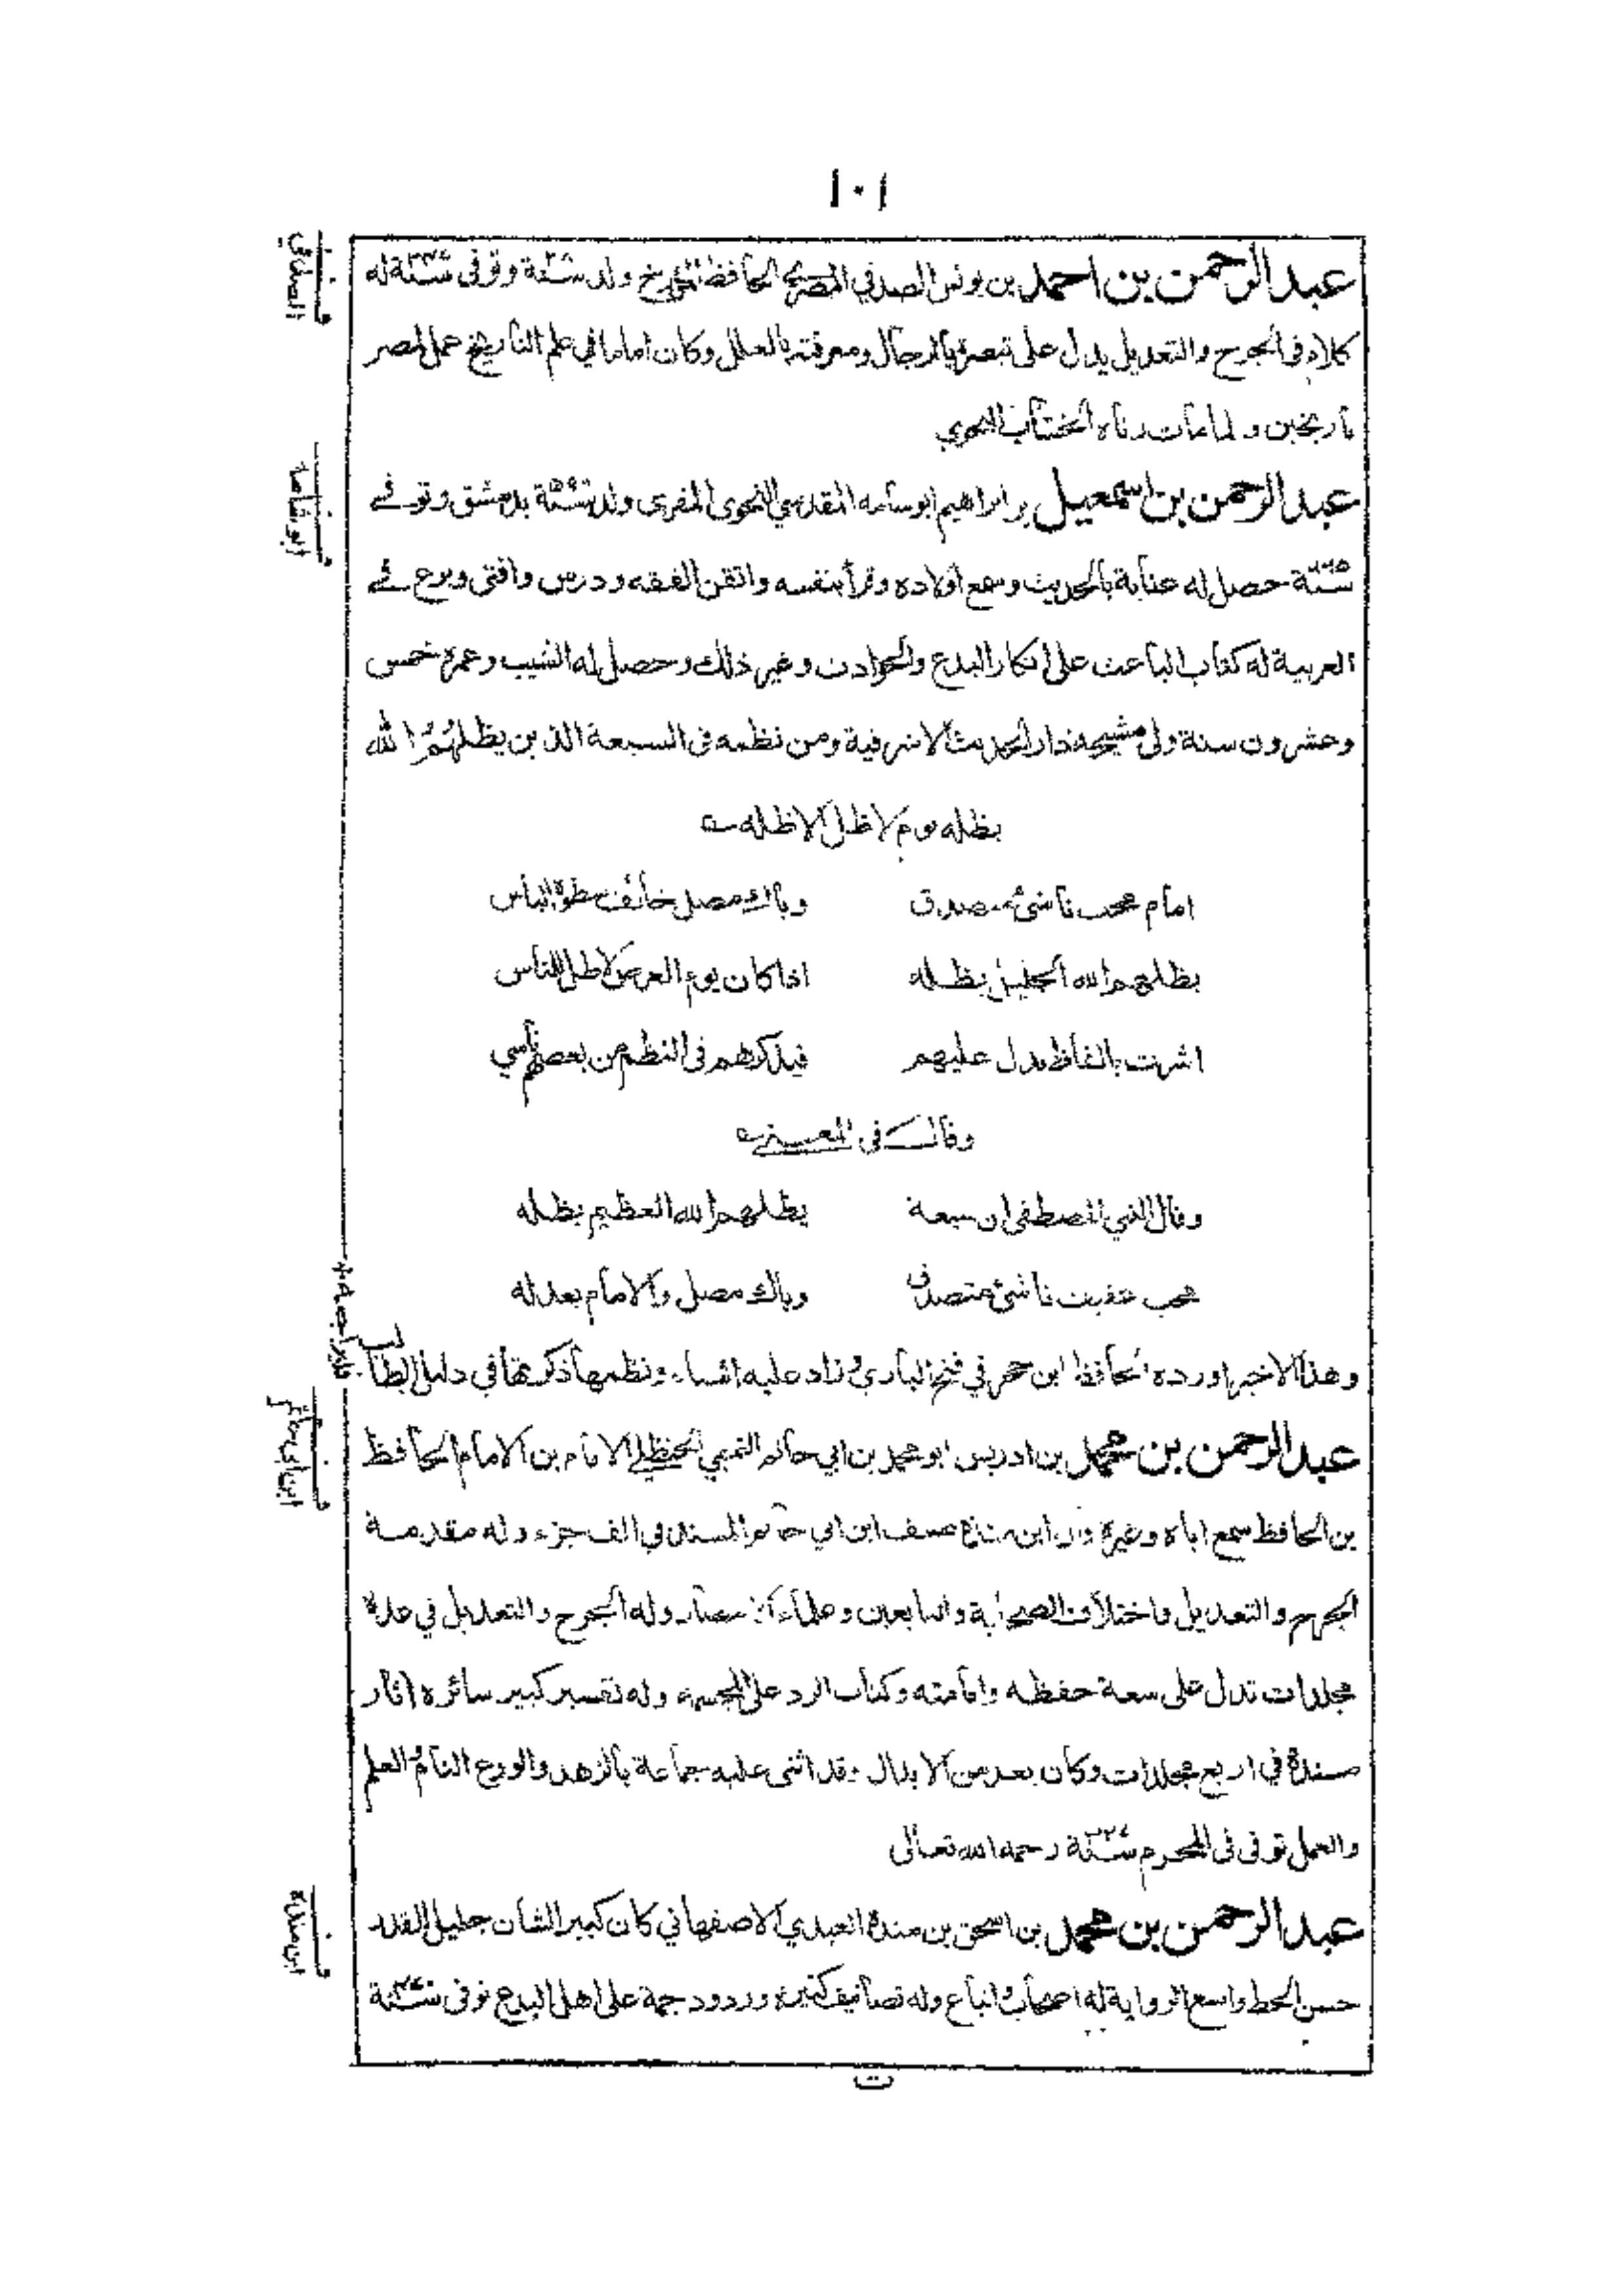 ١٠١
عبد الرحمن بن احمد بن يونس الصدفي المصري الحافظ المؤرخ ولد سنة وتوفى سنة له
الصدفي
كلام فى الجرح والتعديل يدل على تبصره بالرجال ومعرفته بالعلل وكان اماما في علم التأريخ عمل لمصر
تأريخين ولما مات رثاه الخشاب النحوي
عبد الرحمن بن اسمعيل بن ابراهيم ابو شامه المقدسي النحوى المقرى ولد سنة بدمشق وتوفے
ابو شامة
سنة حصل له عناية بالحديث وسمع اولاده وقرأ بنفسه واتقن الفقه ودرس وافتى وبرع فے
العربية له كتاب الباعث على انكار البدع والحوادث وغير ذلك وحصل له الشيب وعمره خمس
وعشرون سنة ولى مشيخة دار الحديث الاشرفية ومن نظمه فى السبعة الذين يظلهم الله
بظله يوم لا ظل الا ظله
امام محب ناشئ متصدق وباك مصل خائف سطوة الباس
يظلهم الله الجليل بظله اذا كان يوم العرض لا ظل للناس
اشرت بالفاظ تدل عليهم فيذكرهم فى النظم من بعضهم ناسي
وقال فى المعنى
وقال النبي المصطفى ان سبعة يظلهم الله العظيم بظله
محب عفيف ناشئ متصدق وباك مصل والامام بعدله
وهذا الاخير اورده الحافظ ابن حجر في فتح الباري وزاد عليه اشياء ونظمها ذكرتها في دليل الطالب
عبد الرحمن بن محمد بن ادريس ابو محمد بن ابي حاتم التميمي الحنظلي الامام بن الامام الحافظ
ابن ابي حاتم
بن الحافظ سمع اباه وغيره قال ابن مندة صنف ابن ابي حاتم المسند في الف جزء وله مقدمة
الجرح والتعديل واختلاف الصحابة والتابعين وعلماء الامصار وله الجرح والتعديل في عدة
مجلدات تدل على سعة حفظه وامامته وكتاب الرد على الجهمية وله تفسير كبير سائره اثار
مسندة في اربع مجلدات وكان يعد من الابدال وقد اثنى عليه جماعة بالزهد والورع التام والعلم
والعمل توفى فى المحرم سنة رحمه الله تعالى
عبد الرحمن بن محمد بن اسحق بن مندة العبدي الاصفهاني كان كبير الشان جليل القدر
ابن مندة
حسن الخط واسع الرواية له اصحاب واتباع وله تصانيف كثيرة وردود جمة على اهل البدع توفى سنة
ت